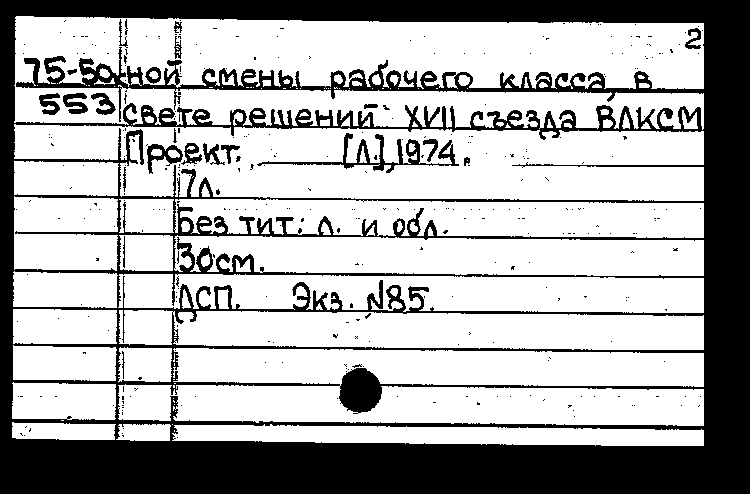 2
75-50 ной смены рабочего класса, в
553 свете решений XVII съезда ВЛКСМ
Проект. [Л.], 1974.
7л.
Без тит. л. и обл.
30см.
ДСП. Экз. №85.